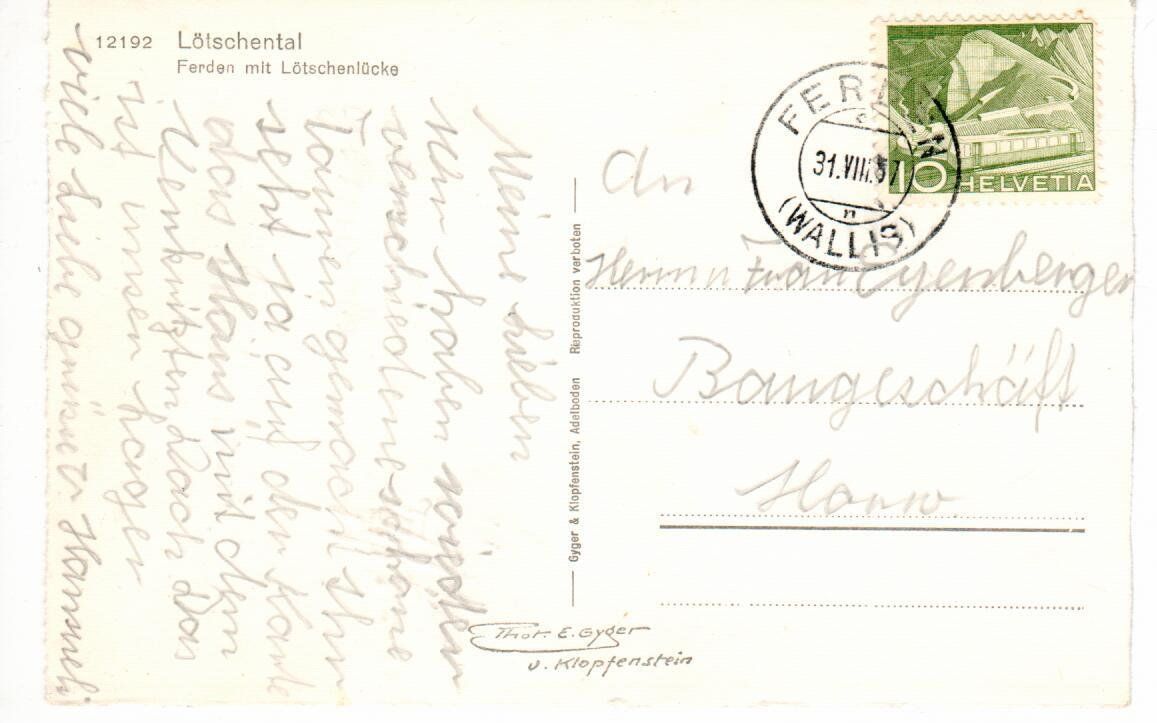 12192 Lötschental
Ferden mit Lötschenlücke
Meine Lieben
Wir haben wieder
verschiedene schöne
Touren gemacht. Ihr
seht ja auf der Karte
das Haus mit dem
verkrizten Dach Das
ist unser Lager
viele liebe grüsse
Reproduktion verboten
Gyger & Klopfenstein, Adelboden
Phot. E. Gyger
u. Klopfenstein
FERDEN
31.VIII.57
(WALLIS)
10 HELVETIA
An
Herrn u Frau
Baugeschäft
Horw.